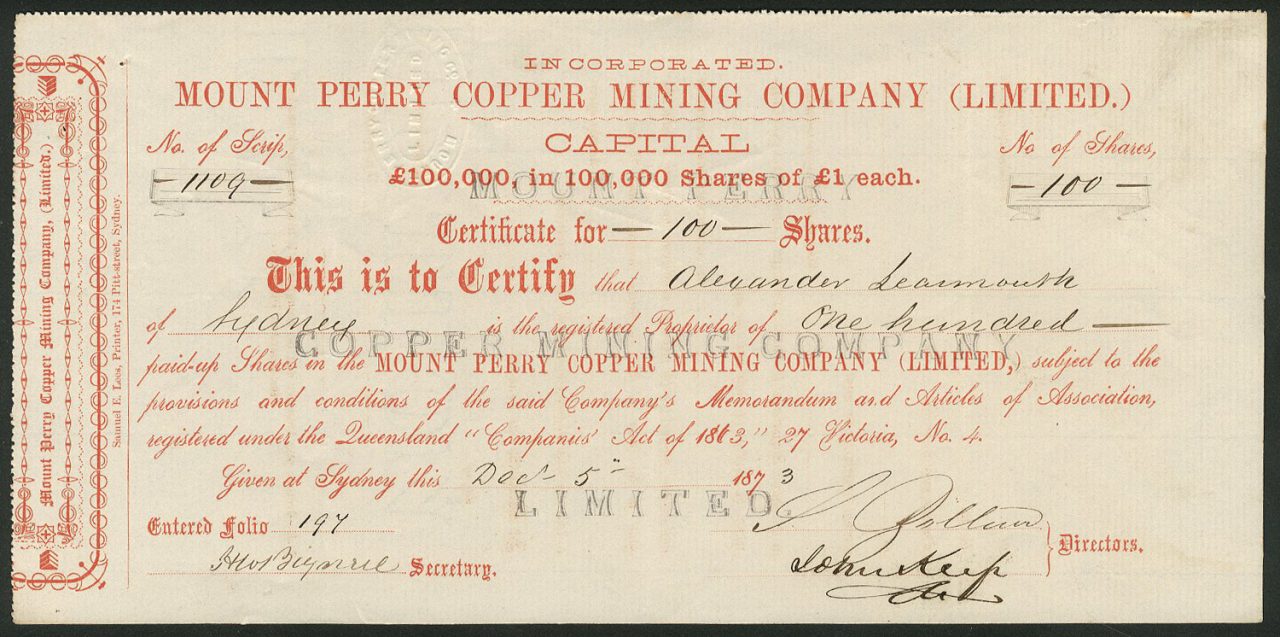 INCORPORATED.
MOUNT PERRY COPPER MINING COMPANY (LIMITED.)
No. of Scrip,
CAPITAL
No of Shares,
1109
£100,000, in 100,000 Shares of £1 each.
100
MOUNT PERRY
Certificate for 100 Shares.
This is to Certify that Alexander Learmonth
of Sydney is the registered Proprietor of One hundred
COPPER MINING COMPANY
paid-up Shares in the MOUNT PERRY COPPER MINING COMPANY (LIMITED,) subject to the
provisions and conditions of the said Company's Memorandum and Articles of Association,
registered under the Queensland "Companies' Act of 1863," 27 Victoria, No. 4.
Given at Sydney this Decr 5th 1873
LIMITED.
Entered Folio 197
Secretary.
John Keep
Directors.
Mount Perry Copper Mining Company, (Limited.)
Samuel E. Lees, Printer, 174 Pitt-street, Sydney.